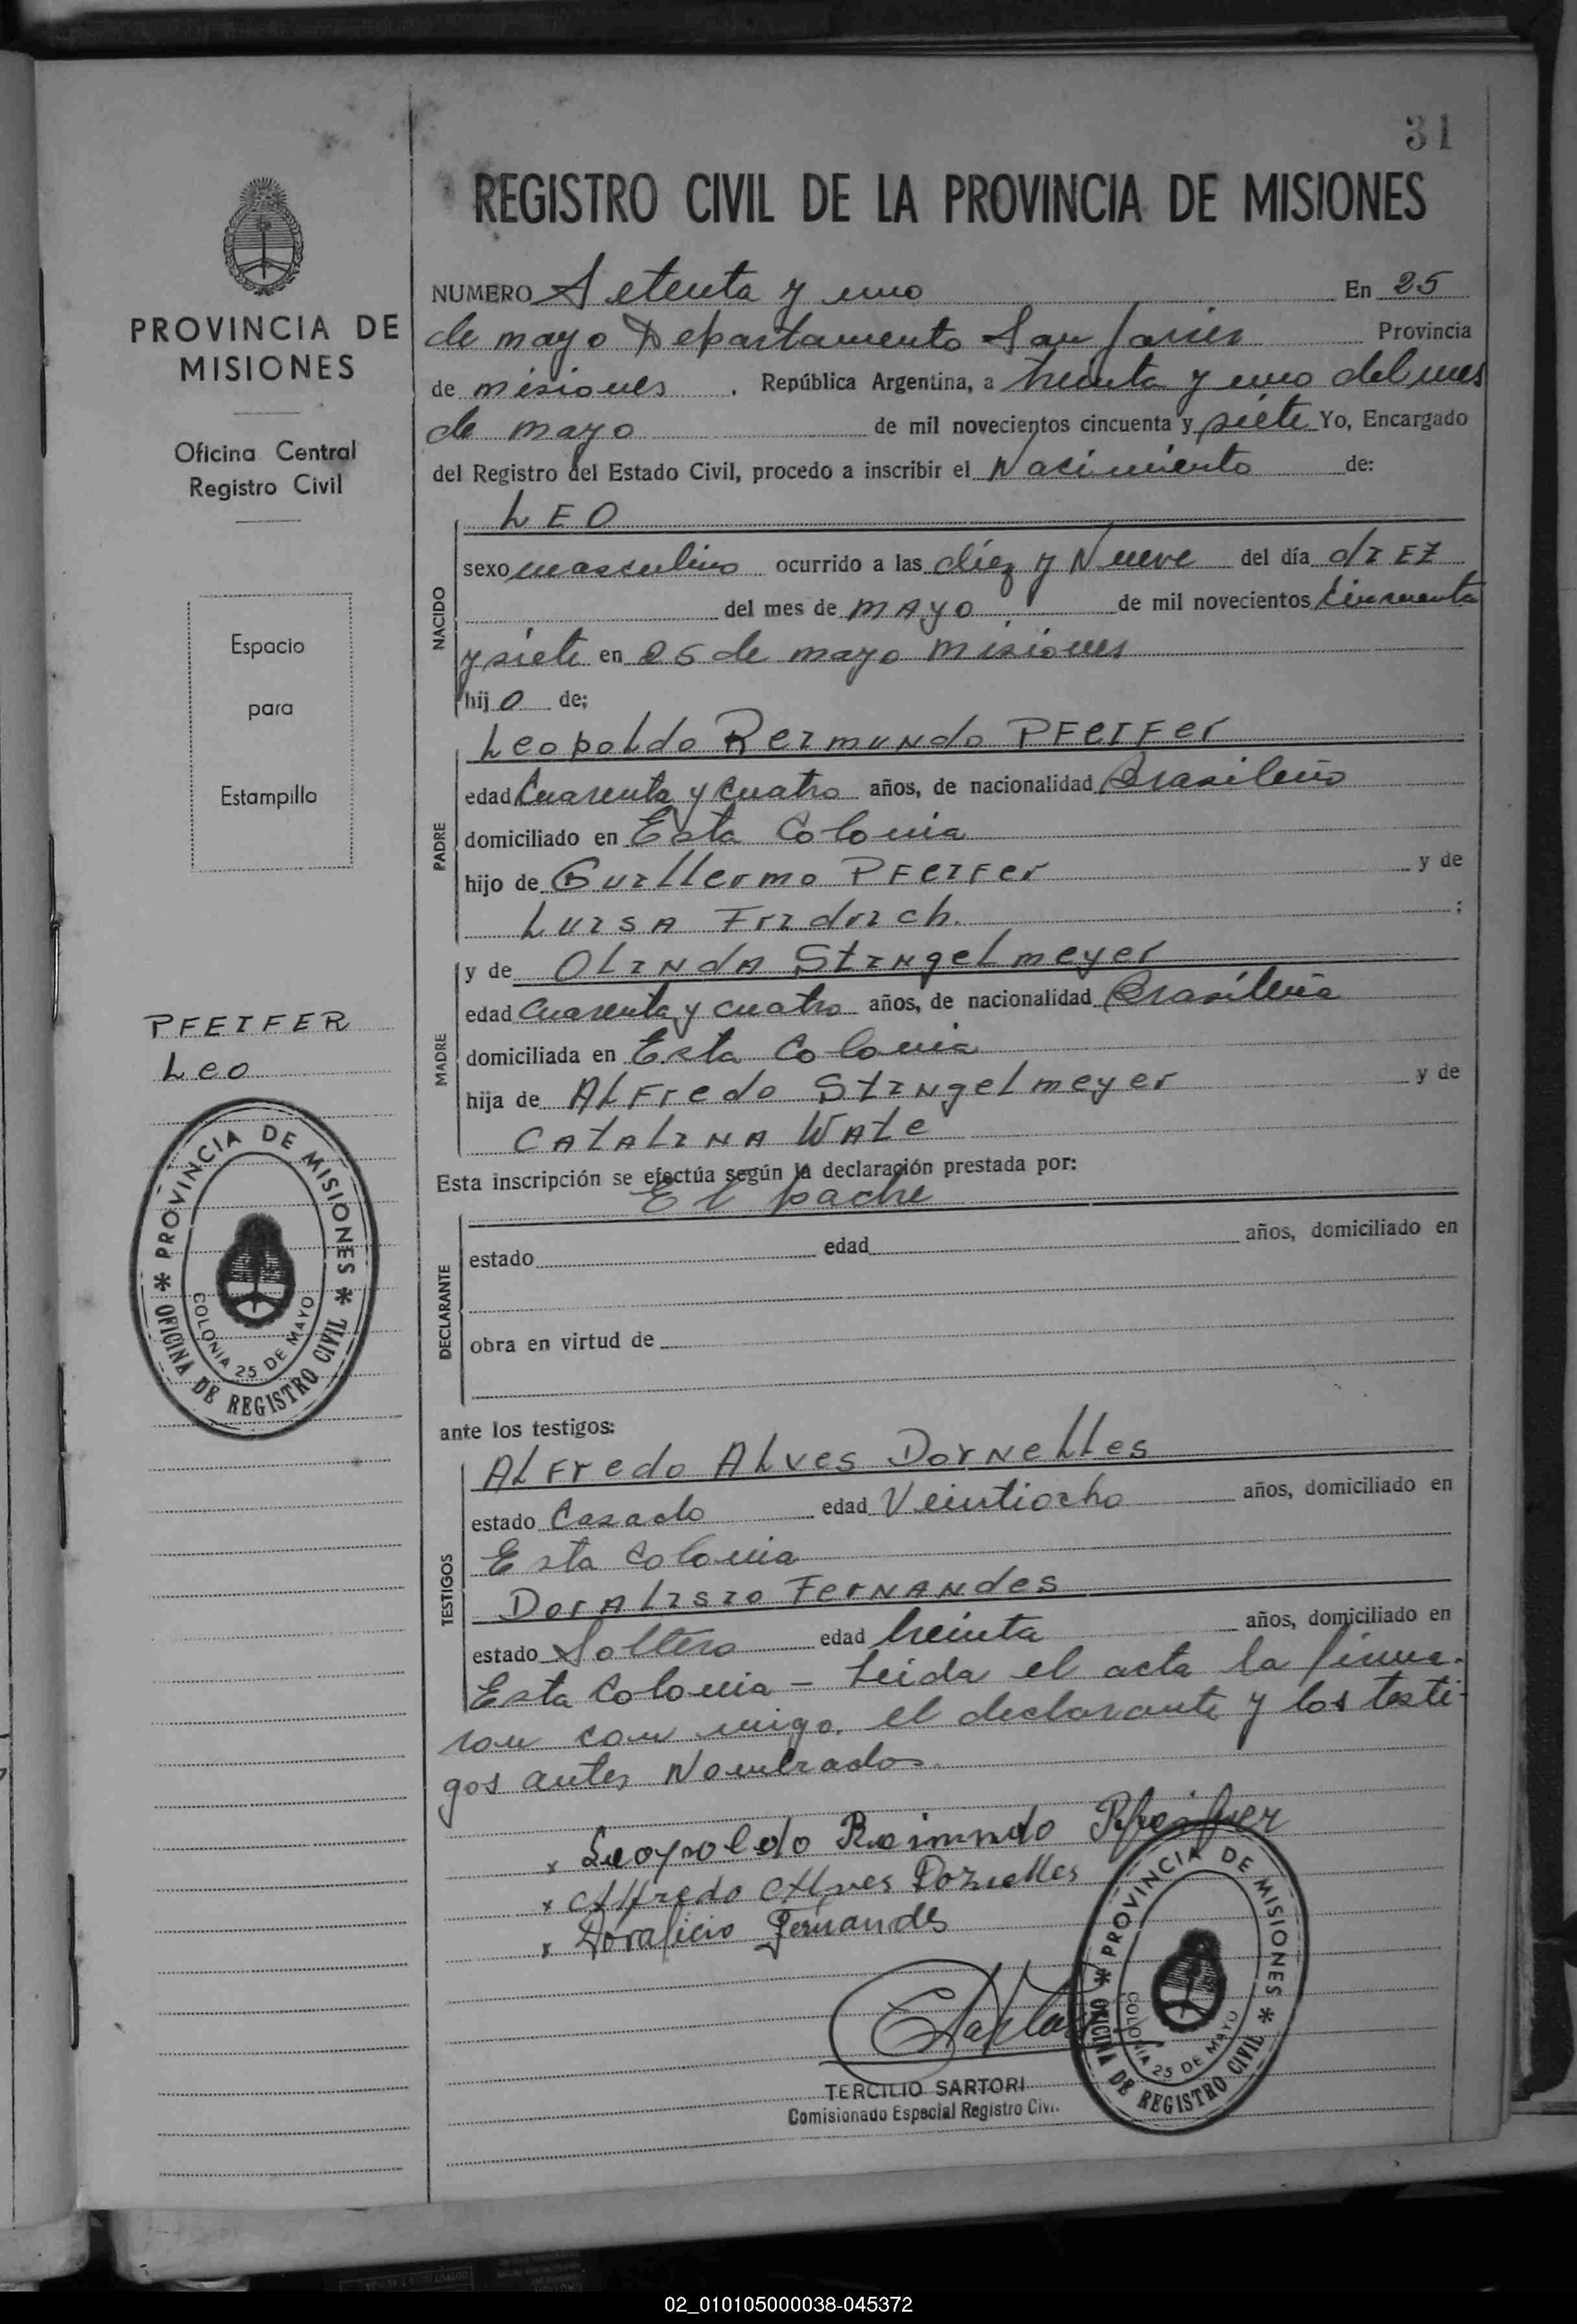 31
REGISTRO CIVIL DE LA PROVINCIA DE MISIONES
PROVINCIA DE
MISIONES
Oficina Central
Registro Civil
Espacio
para
Estampilla
PFEIFER
Leo
PROVINCIA DE MISIONES
COLONIA 25 DE MAYO
OFICINA DE REGISTRO CIVIL
NUMERO Setenta y uno En 25
de mayo Departamento San Javier Provincia
de misiones. República Argentina, a treinta y uno del mes
de mayo de mil novecientos cincuenta y siete Yo, Encargado
del Registro del Estado Civil, procedo a inscribir el Nacimiento de:
NACIDO
LEO
sexo masculino ocurrido a las diez y Nueve del día diEZ
del mes de MAyo de mil novecientos Cincuenta
y siete en 25 de mayo Misiones
hijo de;
PADRE
Leopoldo Reimundo PFeiFer
edad Cuarenta y Cuatro años, de nacionalidad Brasileño
domiciliado en Esta Colonia
hijo de Guillermo PFeiFer y de
LuisA Fridrich. ;
MADRE
y de OLiNdA StiNgeLmeyer
edad Cuarenta y cuatro años, de nacionalidad Brasileña
domiciliada en Esta Colonia
hija de ALFredo StiNgelmeyer y de
CAtALiNA WALe
Esta inscripción se efectúa según la declaración prestada por:
El padre
DECLARANTE
estado edad años, domiciliado en
obra en virtud de
ante los testigos:
TESTIGOS
ALFredo ALves DorNeLLes
estado Casado edad Veintiocho años, domiciliado en
Esta Colonia
DorALisio FerNANdes
estado Soltero edad treinta años, domiciliado en
Esta Colonia - Leida el acta la firma-
ron con migo, el declarante y los testi-
gos antes Nombrados.
x Leopoldo Raimundo Pfeifer
x Alfredo Alves Dornelles
x Doralicio Fernandes
TERCILIO SARTORI
Comisionado Especial Registro Civil.
PROVINCIA DE MISIONES
COLONIA 25 DE MAYO
OFICINA DE REGISTRO CIVIL
02_010105000038-045372